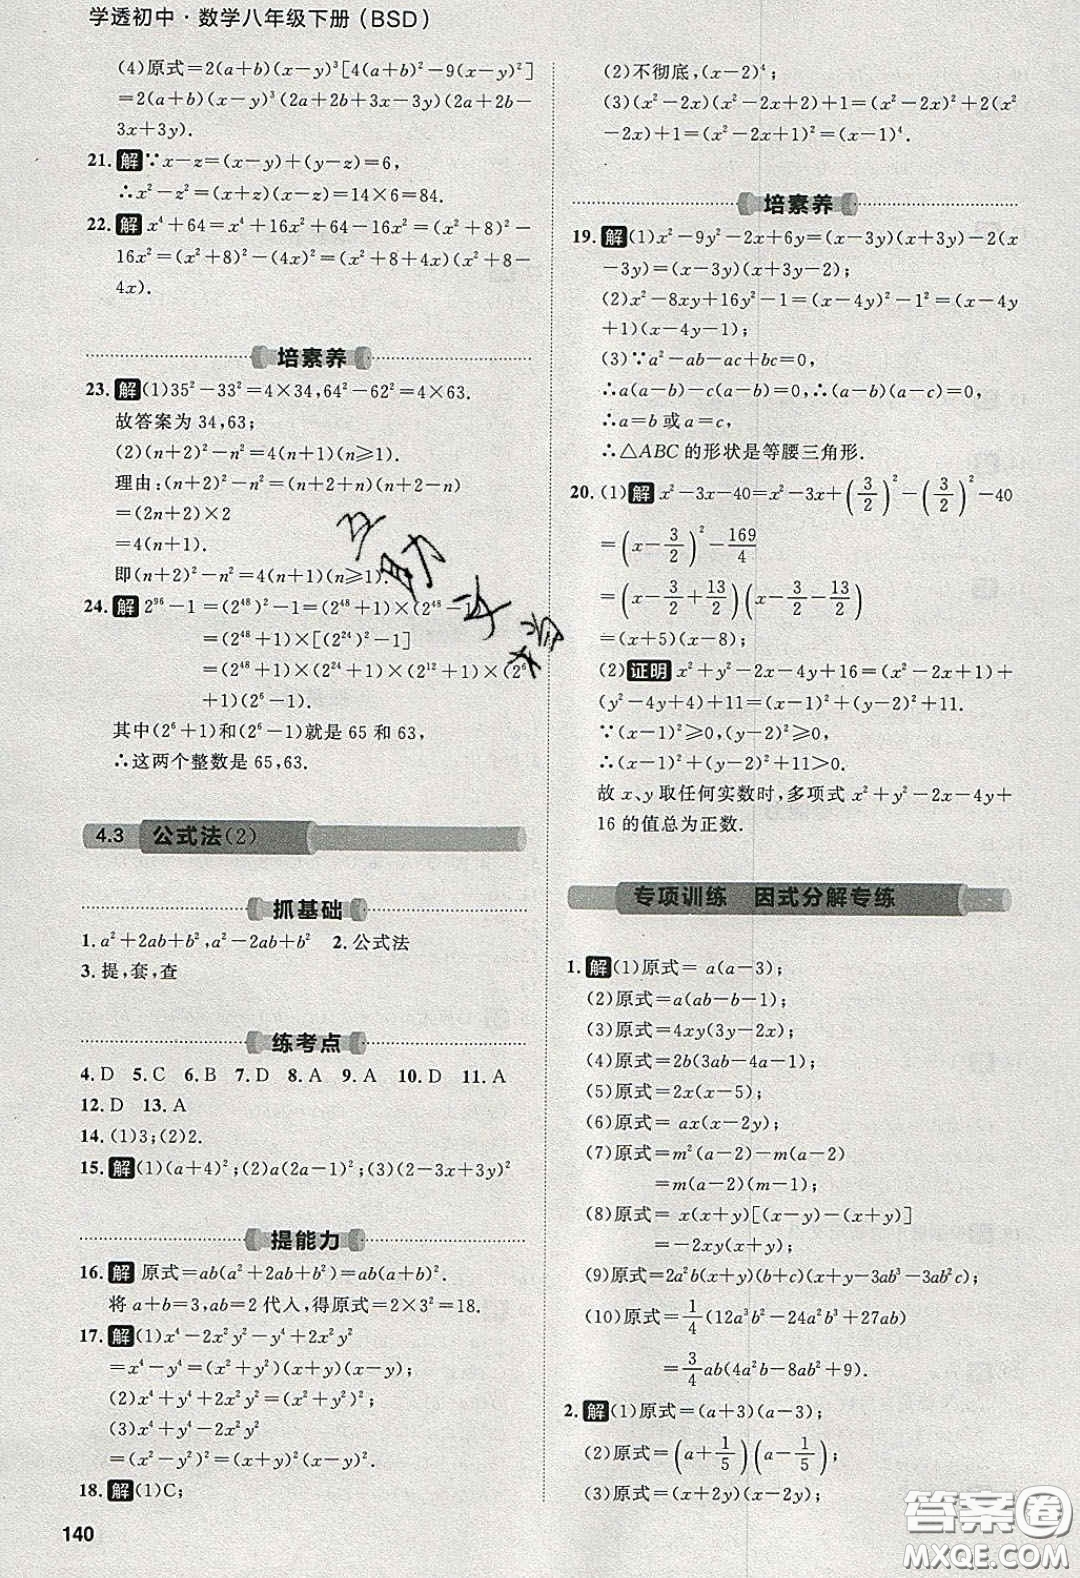 学透初中·数学八年级下册(BSD)
(4)原式=2(a+b)(x-y)³[4(a+b)²-9(x-y)²]
=2(a+b)(x-y)³(2a+2b+3x-3y)(2a+2b-
3x+3y).
21. 解 ∵x-z=(x-y)+(y-z)=6,
∴x²-z²=(x+z)(x-z)=14×6=84.
22. 解 x⁴+64=x⁴+16x²+64-16x²=(x²+8)²-
16x²=(x²+8)²-(4x)²=(x²+8+4x)(x²+8-
4x).
培素养
23. 解 (1)35²-33²=4×34,64²-62²=4×63.
故答案为 34,63;
(2)(n+2)²-n²=4(n+1)(n≥1).
理由:(n+2)²-n²=(n+2+n)(n+2-n)
=(2n+2)×2
=4(n+1).
即(n+2)²-n²=4(n+1)(n≥1).
24. 解 2⁹⁶-1=(2⁴⁸)²-1=(2⁴⁸+1)×(2⁴⁸-1)
=(2⁴⁸+1)×[(2²⁴)²-1]
=(2⁴⁸+1)×(2²⁴+1)×(2¹²+1)×(2⁶
+1)(2⁶-1).
其中(2⁶+1)和(2⁶-1)就是 65 和 63,
∴这两个整数是 65,63.
4.3 公式法(2)
抓基础
1. a²+2ab+b²,a²-2ab+b² 2. 公式法
3. 提,套,查
练考点
4. D 5. C 6. B 7. D 8. A 9. A 10. D 11. A
12. D 13. A
14. (1)3;(2)2.
15. 解 (1)(a+4)²;(2)a(2a-1)²;(3)(2-3x+3y)²
提能力
16. 解 原式=ab(a²+2ab+b²)=ab(a+b)².
将 a+b=3,ab=2 代入,得原式=2×3²=18.
17. 解 (1)x⁴-2x²y²-y⁴+2x²y²
=x⁴-y⁴=(x²+y²)(x+y)(x-y);
(2)x⁴+y⁴+2x²y²=(x²+y²)²;
(3)x⁴+y⁴-2x²y²
=(x²-y²)²=(x-y)²(x+y)².
18. 解 (1)C;
140
(2)不彻底,(x-2)⁴;
(3)(x²-2x)(x²-2x+2)+1=(x²-2x)²+2(x²
-2x)+1=(x²-2x+1)²=(x-1)⁴.
培素养
19. 解 (1)x²-9y²-2x+6y=(x-3y)(x+3y)-2(x
-3y)=(x-3y)(x+3y-2);
(2)x²-8xy+16y²-1=(x-4y)²-1²=(x-4y
+1)(x-4y-1);
(3)∵a²-ab-ac+bc=0,
∴a(a-b)-c(a-b)=0,∴(a-b)(a-c)=0,
∴a=b 或 a=c,
∴△ABC 的形状是等腰三角形.
20. (1) 解 x²-3x-40=x²-3x+(3/2)²-(3/2)²-40
=(x-3/2)²-169/4
=(x-3/2+13/2)(x-3/2-13/2)
=(x+5)(x-8);
(2) 证明 x²+y²-2x-4y+16=(x²-2x+1)+
(y²-4y+4)+11=(x-1)²+(y-2)²+11.
∵(x-1)²≥0,(y-2)²≥0,
∴(x-1)²+(y-2)²+11>0.
故 x、y 取任何实数时,多项式 x²+y²-2x-4y+
16 的值总为正数.
专项训练 因式分解专练
1. 解 (1)原式=a(a-3);
(2)原式=a(ab-b-1);
(3)原式=4xy(3y-2x);
(4)原式=2b(3ab-4a-1);
(5)原式=2x(x-5);
(6)原式=ax(x-2y);
(7)原式=m²(a-2)-m(a-2)
=m(a-2)(m-1);
(8)原式=x(x+y)[(x-y)-(x+y)]
=-2xy(x+y);
(9)原式=2a²b(x+y)(b+c)(x+y-3ab³-3ab²c);
(10)原式=1/4(12a³b²-24a²b³+27ab)
=3/4ab(4a²b-8ab²+9).
2. 解 (1)原式=(a+3)(a-3);
(2)原式=(a+1/5)(a-1/5);
(3)原式=(x+2y)(x-2y);
答案圈
MXQE.COM